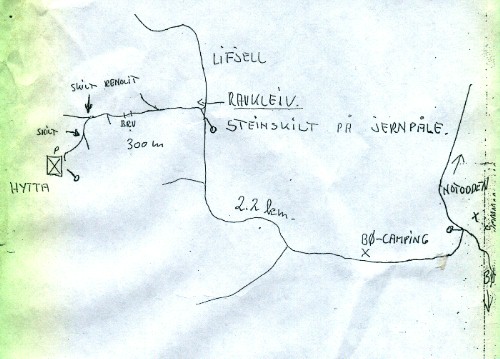 LIFJELL
SKILT RENOLIT
RAUKLEIV.
STEINSKILT PÅ JERNPÅLE.
BRU
300 m
SKILT
P
HYTTA
2.2 km.
BØ-CAMPING
X
NOTODDEN
X
BØ